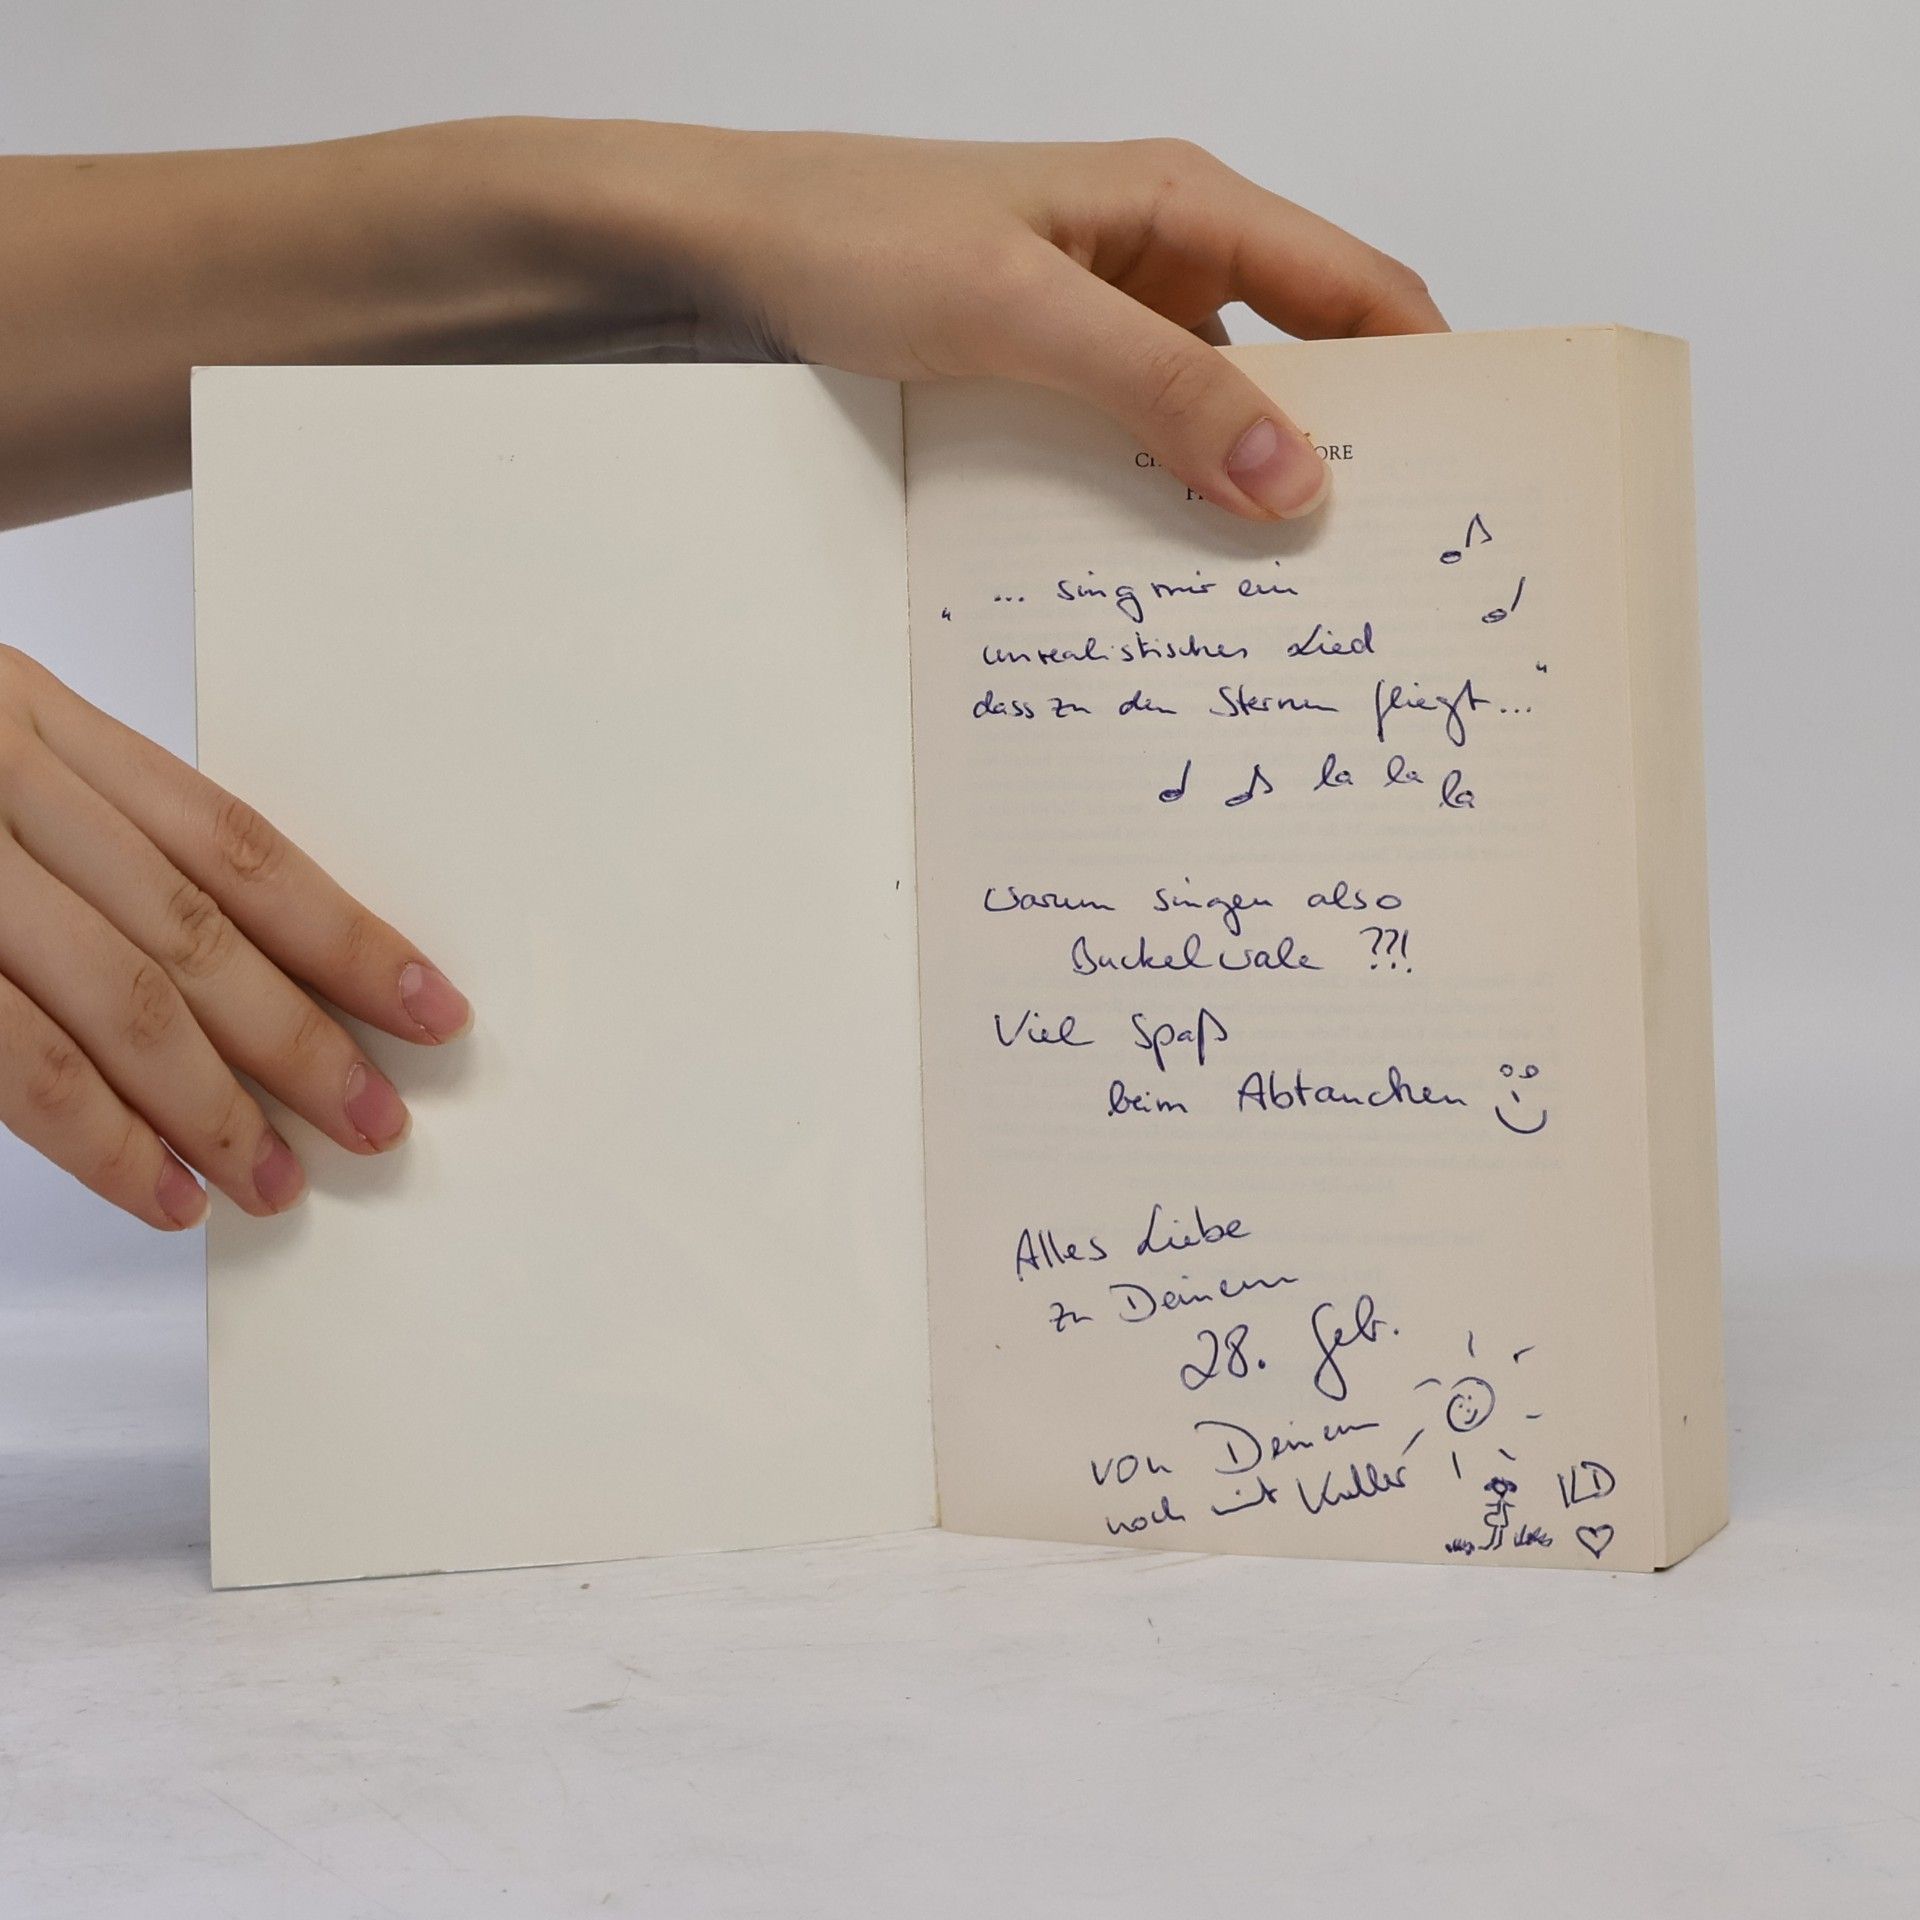 ORE
„ ... sing mir ein
unrealistisches Lied
dass zu den Sternen fliegt..."
la la la
Warum singen also
Buckelwale ??!
Viel Spaß
beim Abtauchen
Alles Liebe
zu Deinem
28. Geb.
von Deinem
noch mit Koller